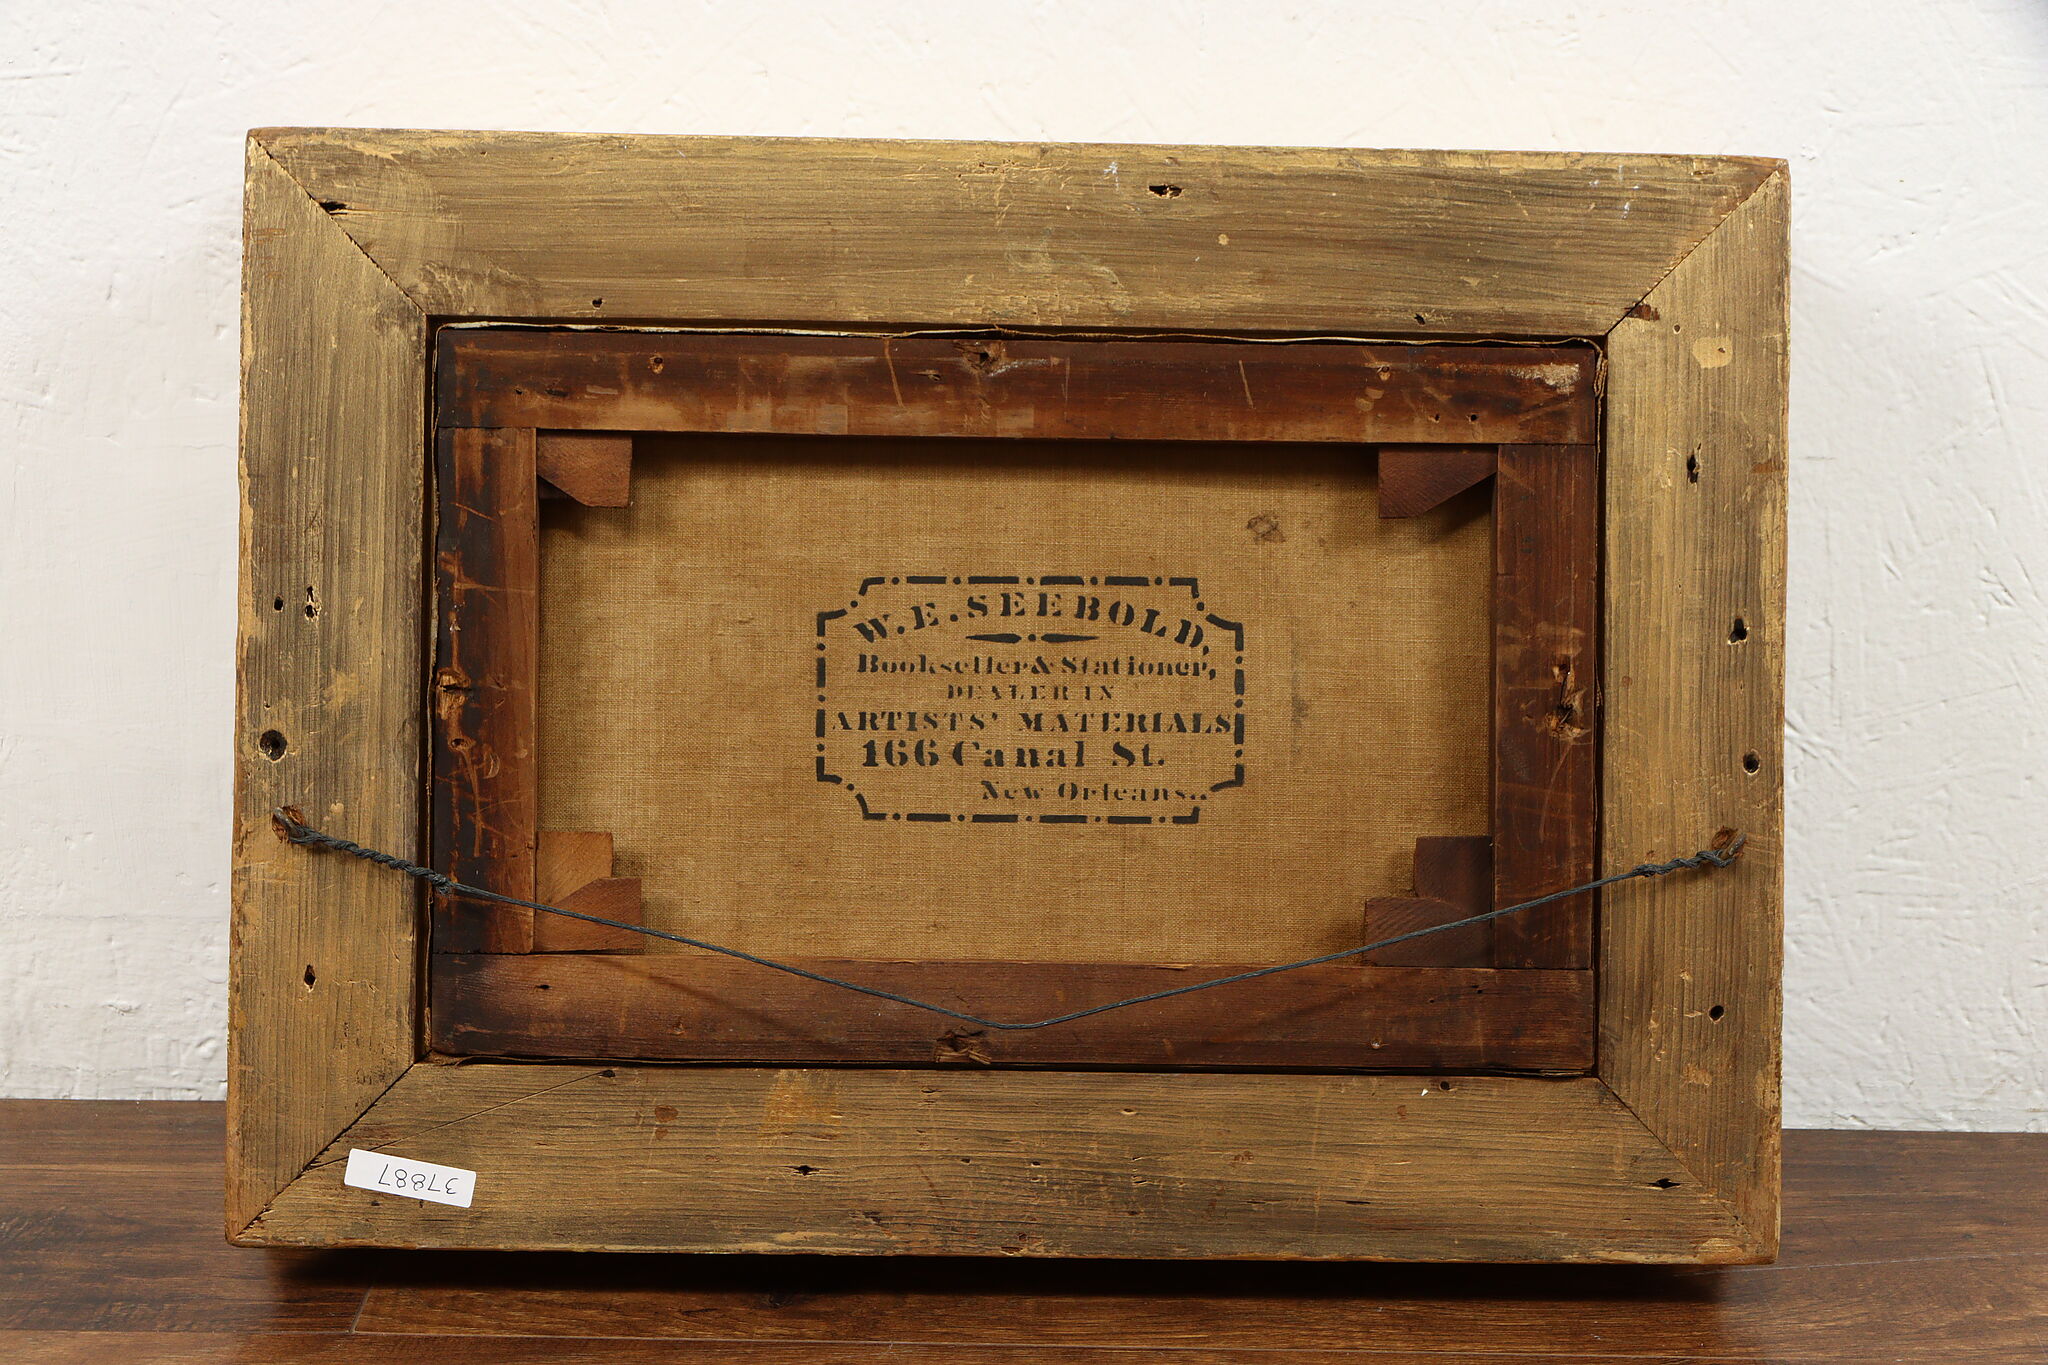 W. E. SEEBOLD,
Bookseller & Stationer,
DEALER IN
ARTISTS' MATERIALS
166 Canal St.
New Orleans..
37887